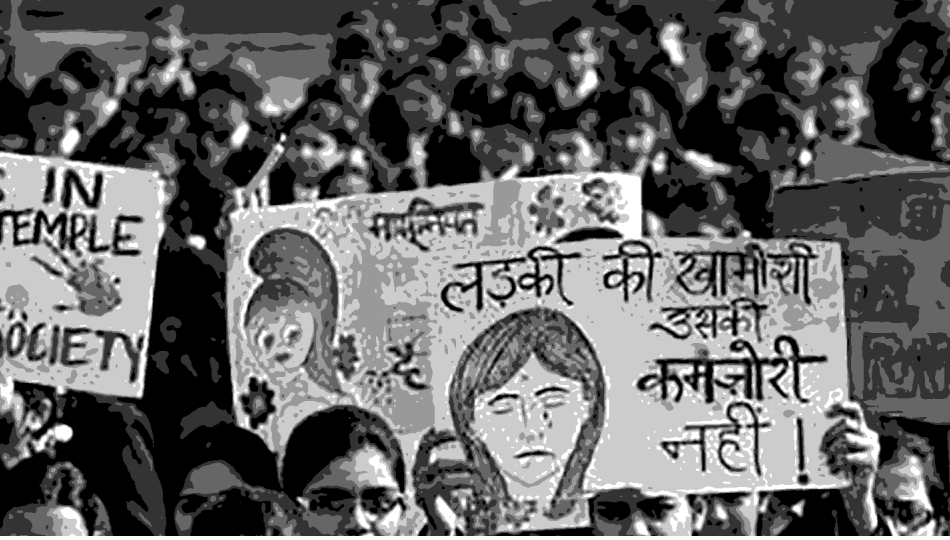 IN
TEMPLE
SOCIETY
लड़की की खामोशी
उसकी
कमज़ोरी
नहीं !
है